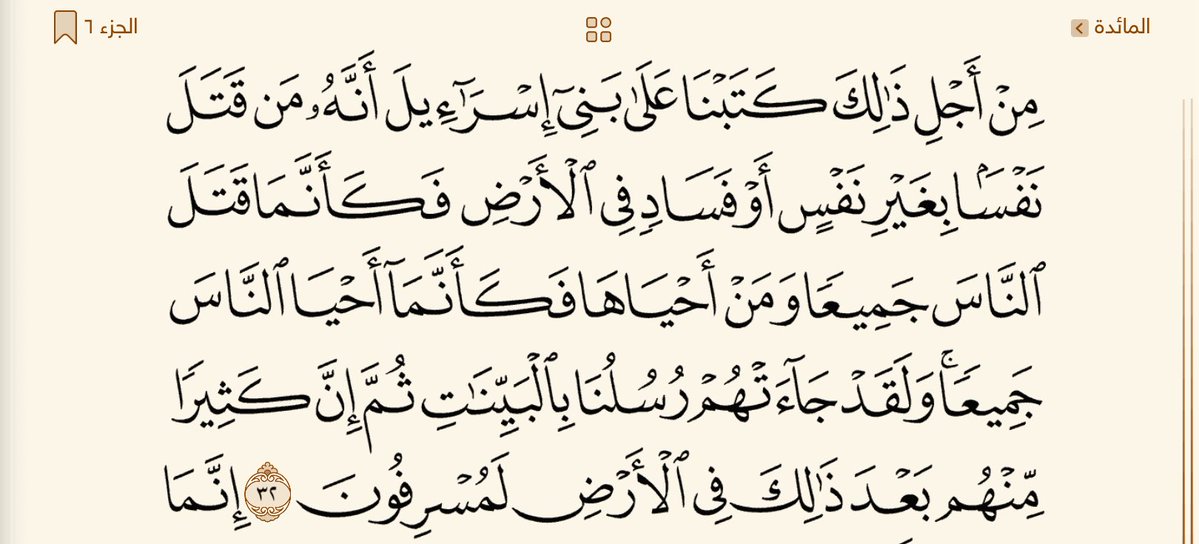 المائدة
الجزء ٦
مِنْ أَجْلِ ذَٰلِكَ كَتَبْنَا عَلَىٰ بَنِىٓ إِسْرَٰٓءِيلَ أَنَّهُۥ مَن قَتَلَ
نَفْسَۢا بِغَيْرِ نَفْسٍ أَوْ فَسَادٍ فِى ٱلْأَرْضِ فَكَأَنَّمَا قَتَلَ
ٱلنَّاسَ جَمِيعًا وَمَنْ أَحْيَاهَا فَكَأَنَّمَآ أَحْيَا ٱلنَّاسَ
جَمِيعًا ۚ وَلَقَدْ جَآءَتْهُمْ رُسُلُنَا بِٱلْبَيِّنَٰتِ ثُمَّ إِنَّ كَثِيرًا
مِّنْهُم بَعْدَ ذَٰلِكَ فِى ٱلْأَرْضِ لَمُسْرِفُونَ ٣٢ إِنَّمَا